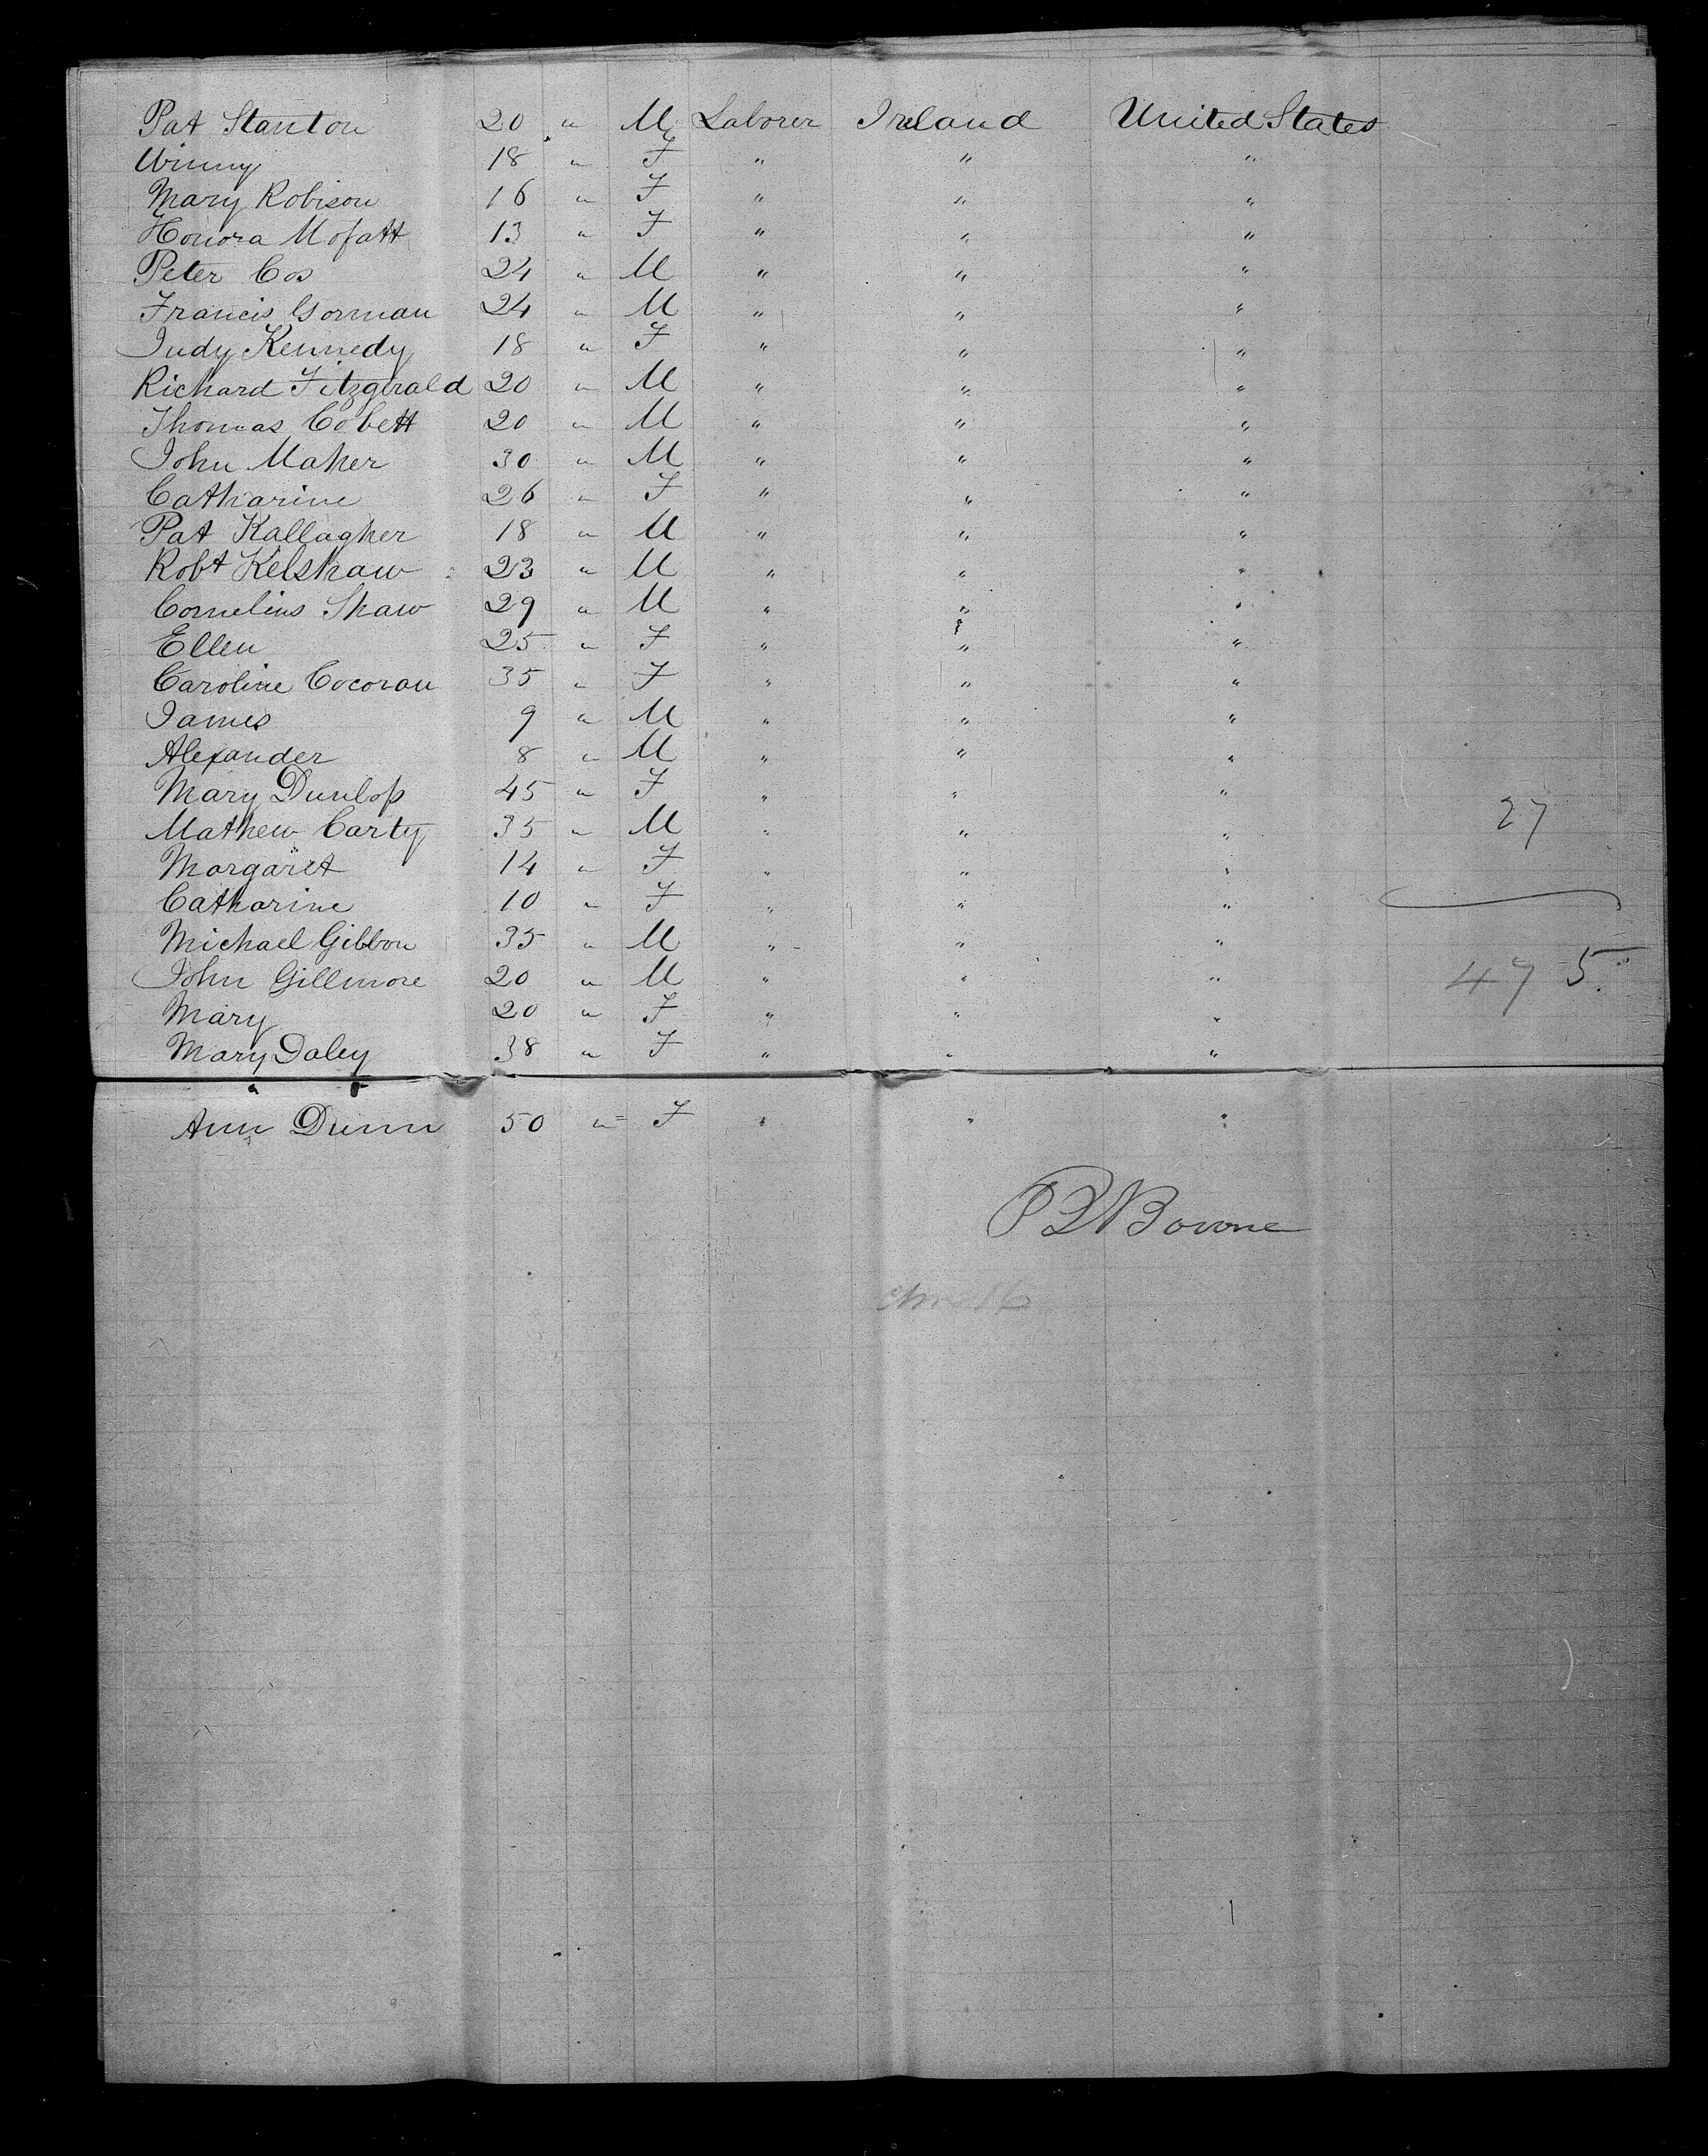 Pat Stanton 20 " M Laborer Ireland United States
Winny 18 " F " " "
Mary Robison 16 " F " " "
Honora Mofatt 13 " F " " "
Peter Cos 24 " M " " "
Francis Gorman 24 " M " " "
Judy Kennedy 18 " F " " "
Richard Fitzgirald 20 " M " " "
Thomas Cobett 20 " M " " "
John Maher 30 " M " " "
Catharine 26 " F " " "
Pat Kallagher 18 " M " " "
Robt Kelshaw 23 " M " " "
Cornelius Shaw 29 " M " " "
Ellen 25 " F " " "
Caroline Cocoran 35 " F " " "
James 9 " M " " "
Alexander 8 " M " " "
Mary Dunlop 45 " F " " "
Mathew Carty 35 " M " " " 27
Margaret 14 " F " " "
Catharine 10 " F " " "
Michael Gibbon 35 " M " " "
John Gillmore 20 " M " " " 475
Mary 20 " F " " "
Mary Daley 38 " F " " "
Ann Dunn 50 " F " " "
Bowne